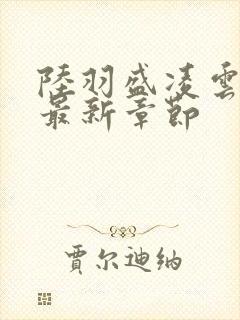 陸羽盛凌雲
最新章節
賈尔迪纳